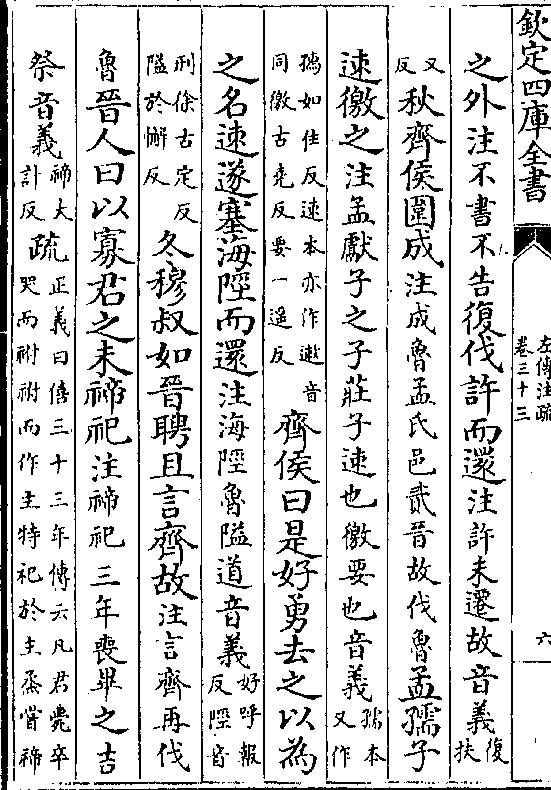 欽定四庫全書
左傳注疏
卷三十三
六
之外注不書不告復伐許而還注許未遷故音義復扶
又反秋齊侯圍成注成魯孟氏邑貳晉故伐魯孟孺子
速徼之注孟獻子之子莊子速也徼要也音義孺本又作
㺊如住反速本亦作遬音同徼古堯反要一遥反齊侯曰是好勇去之以為
之名速遂塞海陘而還注海陘魯隘道音義好呼報反陘音
刑徐古定反隘於懈反冬穆叔如晉聘且言齊故注言齊再伐
魯晉人曰以寡君之未禘祀注禘祀三年喪畢之吉
祭音義禘大計反疏正義曰僖三十三年傳云凡君薨卒哭而祔祔而作主特祀於主烝嘗禘